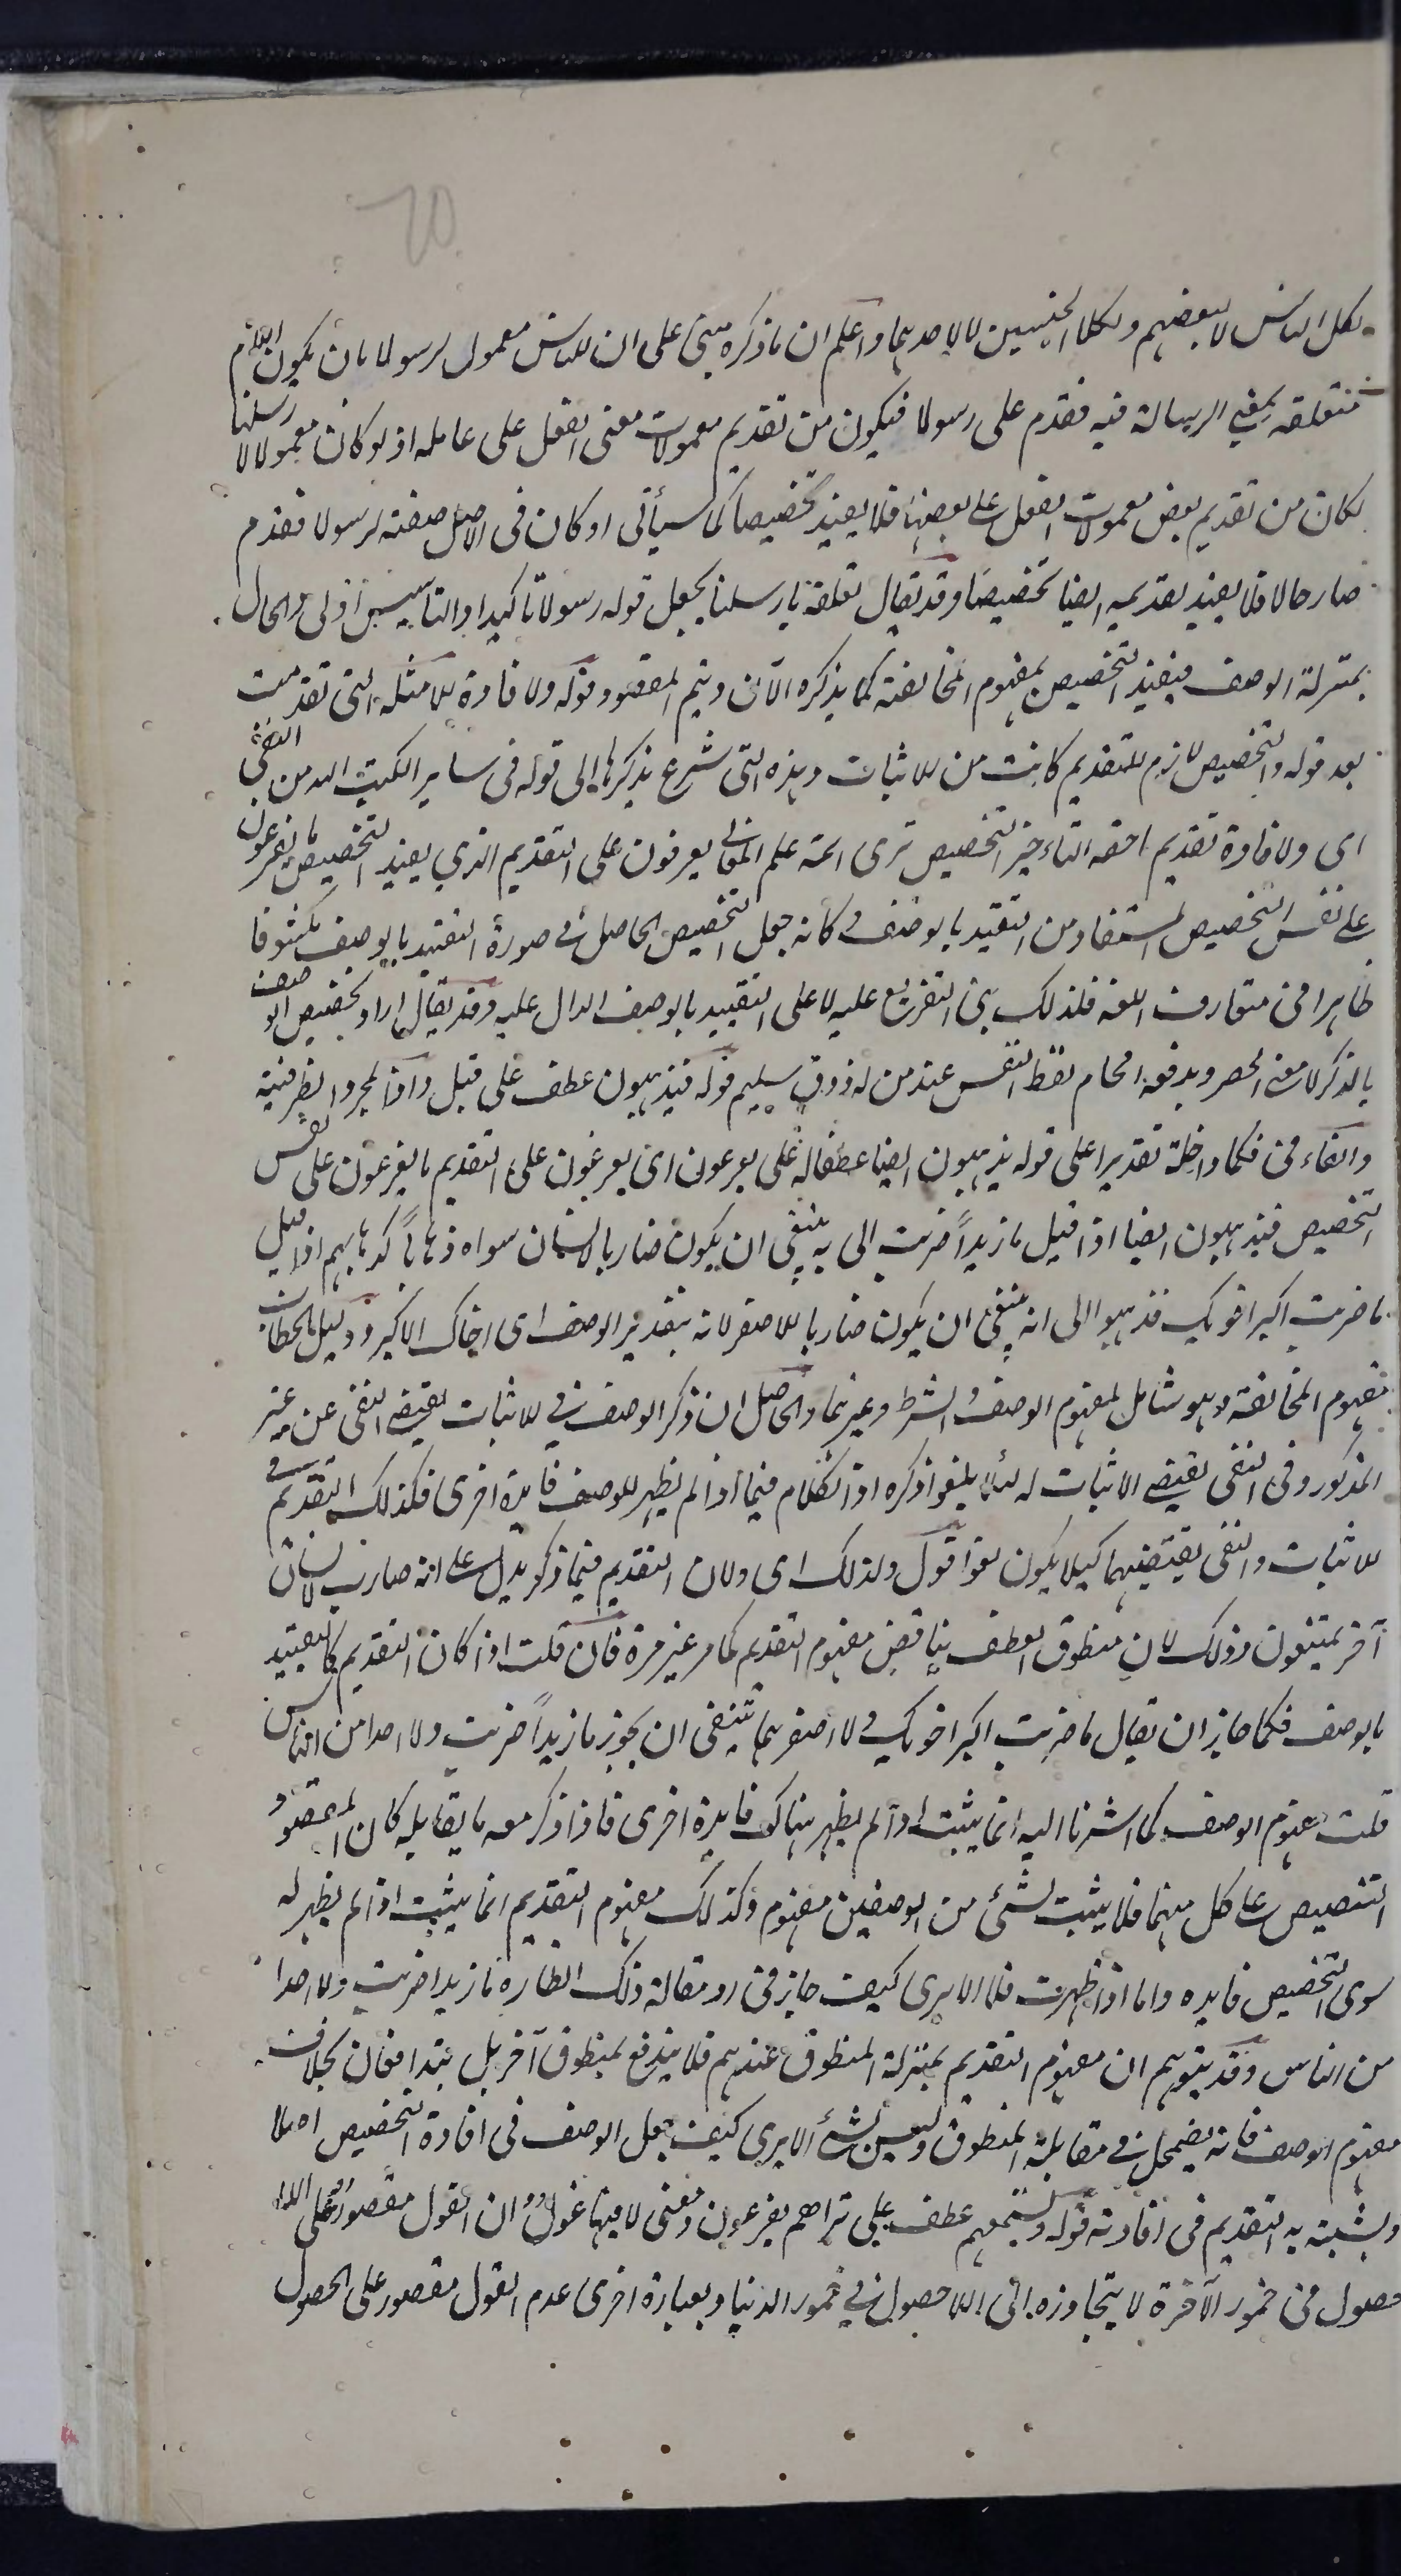 لكل الناس لا لبعضهم ولكلا الجنسين لا لاحدهما واعلم ان ما ذكره مبنى على ان للناس معمول لرسولا بان يكون اللام
متعلقه بمعنى الرسالة فيه فقدم على رسولا فيكون من تقديم معمولات معنى الفعل على عامله اذ لو كان معمولا لارسلنا
لكان من تقديم بعض معمولات الفعل على بعضها فلا يفيد تخصيصا كما سيأتى او كان فى الاصل صفته لرسولا فقدم
صار حالا فلا يفيد تقديمه ايضا تخصيصا وقد يقال تعلقه بارسلنا يجعل قوله رسولا تاكيدا والتاسيس اولى والحال
بمنزلة الوصف فيفيد التخصيص بمفهوم المخالفة كما يذكره الآن ويتم المقصود قوله ولافادة للامثله التى تقدمت
بعد قوله والتخصيص لازم للتقديم كانت من الاثبات وهذه التى شرع يذكرها الى قوله فى ساير الكتب الله من النفى
اى ولافادة تقديم ما حقه التاخير التخصيص ترى ائمة علم المعانى يفرعون على التقديم الذي يفيد التخصيص ما يفرعون
على نفس التخصيص المستفاد من التقييد بالوصف وكانه جعل التخصيص الحاصل فى صورة التقييد بالوصف مكشوفا
ظاهرا فى متعارف اللغه فلذلك بنى التفريع عليه لا على التقييد بالوصف الدال عليه وقد يقال اراد تخصيص الوصف
بالذكر لا معنى الحصر ويدفعه لفظ النفس عند من له ذوق سليم قوله فيذهبون عطف على قيل واذا لمجرد الظرفية
والفاء فى فكما داخلة تقديرا على قوله يذهبون ايضا عطفا له على يفرعون اى يفرعون على التقديم ما يفرعون على نفس
التخصيص فيذهبون ايضا اذا قيل ما زيداً ضربت الى انه ينبغى ان يكون ضاربا لانسان سواه ذهابا كذهابهم اذا قيل
ما ضربت اكبر اخويك فذهبوا الى انه ينبغى ان يكون ضاربا للاصغر لانه بتقدير الوصف اى اخاك الاكبر ودليل الخطاب
مفهوم المخالفة وهو شامل لمفهوم الوصف والشرط وغيرهما والحاصل ان ذكر الوصف فى الاثبات يقتضى النفى عن غير
المذكور وفى النفى يقتضى الاثبات له لئلا يلغو ذكره اذ الكلام فيما اذا لم يظهر للوصف فايدة اخرى فكذلك التقديم فى
الاثبات والنفى يقتضيهما كيلا يكون لغوا قوله ولذلك اى ولان التقديم فيما ذكر يدل على انه ضارب لانسان
آخر يمتنعون وذلك لان منطوق العطف يناقض مفهوم التقديم كما مر غير مرة فان قلت اذا كان التقديم كالتقييد
بالوصف فكما جاز ان يقال ما ضربت اكبر اخويك ولا اصغرهما ينبغى ان يجوز ما زيداً ضربت ولا احدا من الناس
قلت مفهوم الوصف كما اشرنا اليه انما يثبت اذا لم يظهر هناك فايدة اخرى فاذا ذكر معه ما يقابله كان المقصود
التنصيص على كل منهما فلا يثبت لشئ من الوصفين مفهوم وكذلك مفهوم التقديم انما يثبت اذا لم يظهر له
سوى التخصيص فايده واما اذا ظهرت فلا الا يرى كيف جاز فى رد مقالة ذلك الظان ما زيدا ضربت ولا احدا
من الناس وقد يتوهم ان مفهوم التقديم بمنزلة المنطوق عندهم فلا يندفع بمنطوق آخر بل يتدافعان بخلاف
مفهوم الوصف فانه يضمحل فى مقابلة المنطوق وليس بشئ الا يرى كيف جعل الوصف فى افادة التخصيص اصلا
ويشبه به التقديم فى افادته قوله وتسمعهم عطف على تراهم يفرعون ومعنى لا فيها غول ان الغول مقصور على اللا
حصول فى خمور الآخرة لا يتجاوزه الى اللا حصول فى خمور الدنيا وبعبارة اخرى عدم الغول مقصور على الحصول